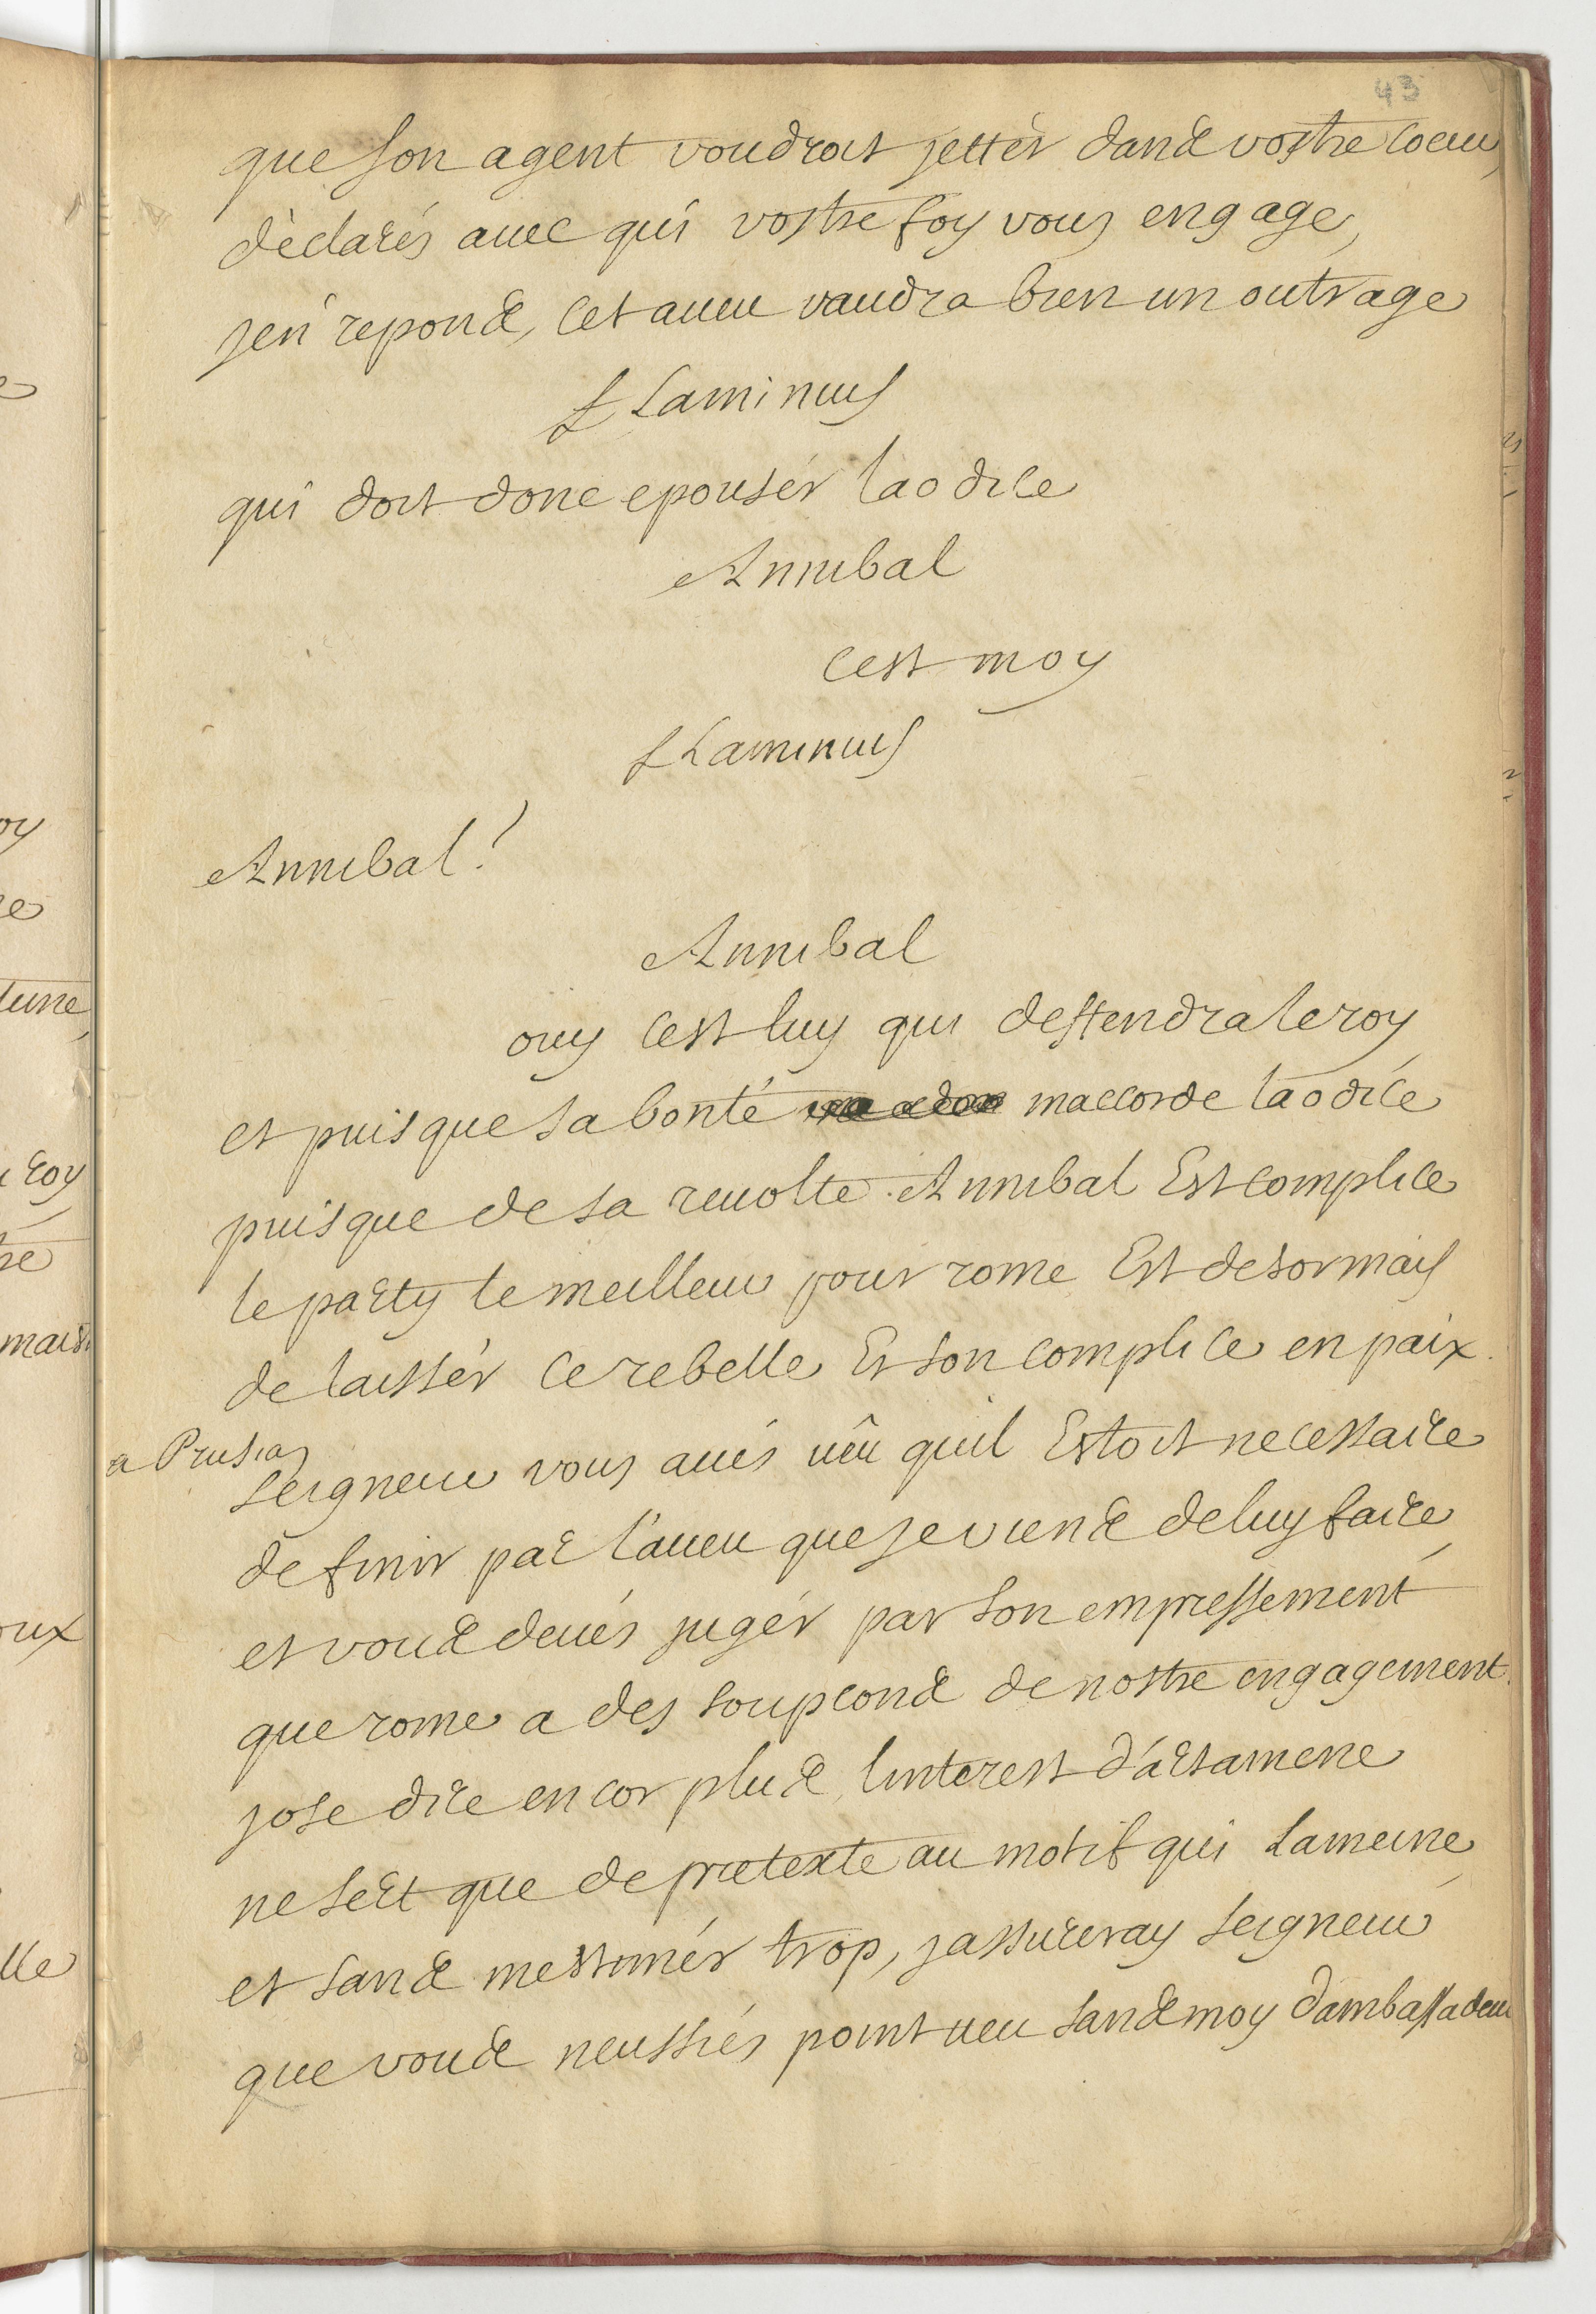 43
que son agent voudroit jetter dans vostre coeur,
déclarés avec qui vostre foy vous engage,
j'en repons, cet aveu vaudra bien un outrage
flaminius
qui doit donc epouser laodice
Annibal
cest moy
flaminius
Annibal!
Annibal
ouy cest luy qui deffendra le roy
et puisque sa bonté maccorde laodice
puisque de sa revolte Annibal Est complice
le party le meilleur pour rome Est desormais
de laisser ce rebelle Et son complice en paix.
a Prusias
seigneur vous avés vêu quil Estoit necessaire
de finir par l'aveu que je viens de luy faire,
et vous devés juger par son empressement
que rome a des soupcons de nostre engagement.
jose dire encor plus, linterest d'artamene
ne sert que de pretexte au motif qui lameine,
et sans mestimér trop, jassureray seigneur
que vous neussiés point veu sans moy dambassadeur